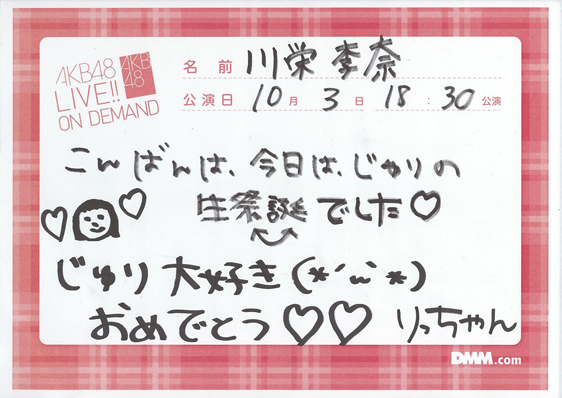 AKB48
LIVE!!
ON DEMAND
AKB
48
名前 川栄李奈
公演日 10月3日 18:30公演
こんばんは、今日は、じゅりの
生祭誕でした♡
じゅり大好き(*´ω`*)
おめでとう♡♡ りっちゃん
DMM.com